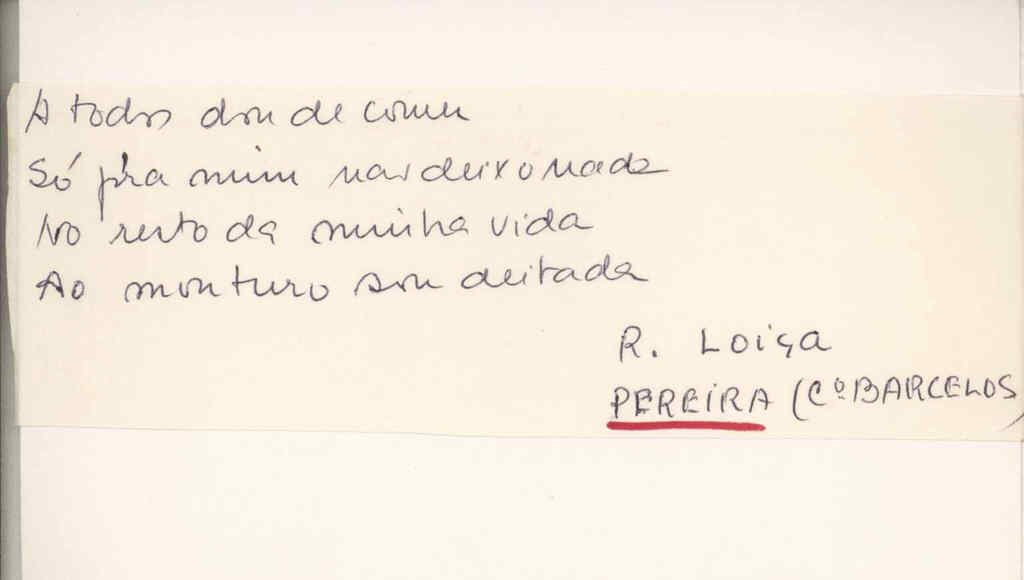 A todos dou de comer
Só p'ra mim nao deixo nada
No resto da minha vida
Ao monturo sou deitada
R. Loiça
PEREIRA (Cº BARCELOS)